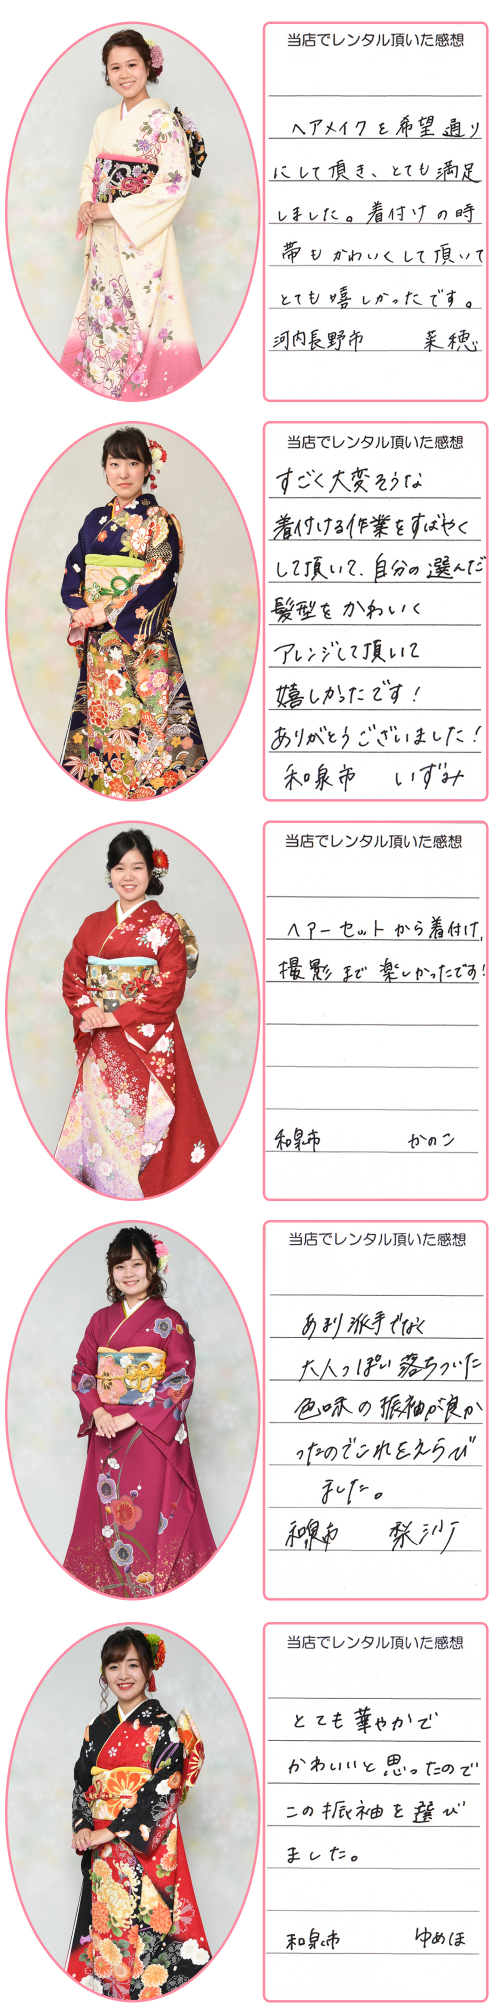 当店でレンタル頂いた感想
ヘアメイクを希望通り
にして頂き、とても満足
しました。着付けの時
帯もかわいくして頂いて
とても嬉しかったです。
河内長野市 菜穂
当店でレンタル頂いた感想
すごく大変そうな
着付ける作業をすばやく
して頂いて、自分の選んだ
髪型をかわいく
アレンジして頂いて
嬉しかったです!
ありがとうございました!
和泉市 いずみ
当店でレンタル頂いた感想
ヘアーセットから着付け、
撮影まで楽しかったです!
和泉市 かのこ
当店でレンタル頂いた感想
あまり派手でなく
大人っぽい落ちついた
色味の振袖が良か
ったのでこれをえらび
ました。
和泉市 梨沙
当店でレンタル頂いた感想
とても華やかで
かわいいと思ったので
この振袖を選び
ました。
和泉市 ゆめほ